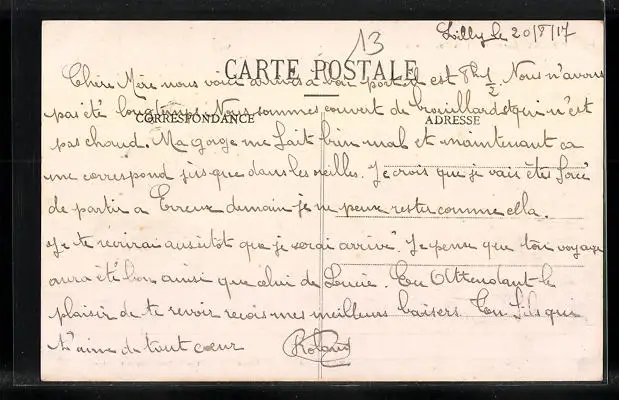 Lilly le 20/8/17
13
CARTE POSTALE
Chère Mère nous voici arrivés à port il est 8h 1/2. Nous n'avons
pas été longtemps. Nous sommes couvert de brouillard et qui n'est
CORRESPONDANCE ADRESSE
pas chaud. Ma gorge me fait bien mal et maintenant ca
me correspond jusque dans les oreilles. Je crois que je vais être forcé
de partir a Evreux demain je ne peux rester comme cela.
Je te récrirai aussitôt que je serai arrivé. Je pense que ton voyage
aura été bon ainsi que celui de Lucie. En Attendant le
plaisir de te revoir recois mes meilleurs baisers. Ton fils qui
t'aime de tout cœur Roland